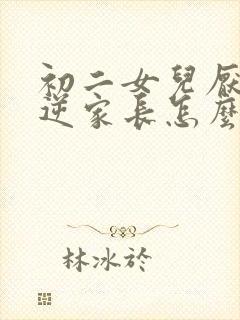 初二女兒厭
逆家長怎麼
林冰於